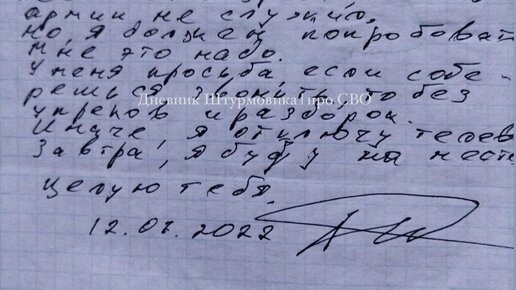 армии не служил,
но я должен попробовать
мне это надо.
У меня просьба, если собе-
решься звонить, то без
упреков и разборок.
Дневник Штурмовика | про СВО
Иначе, я отключу телеф
Завтра, я буду на мест
целую тебя.
12.07.2022